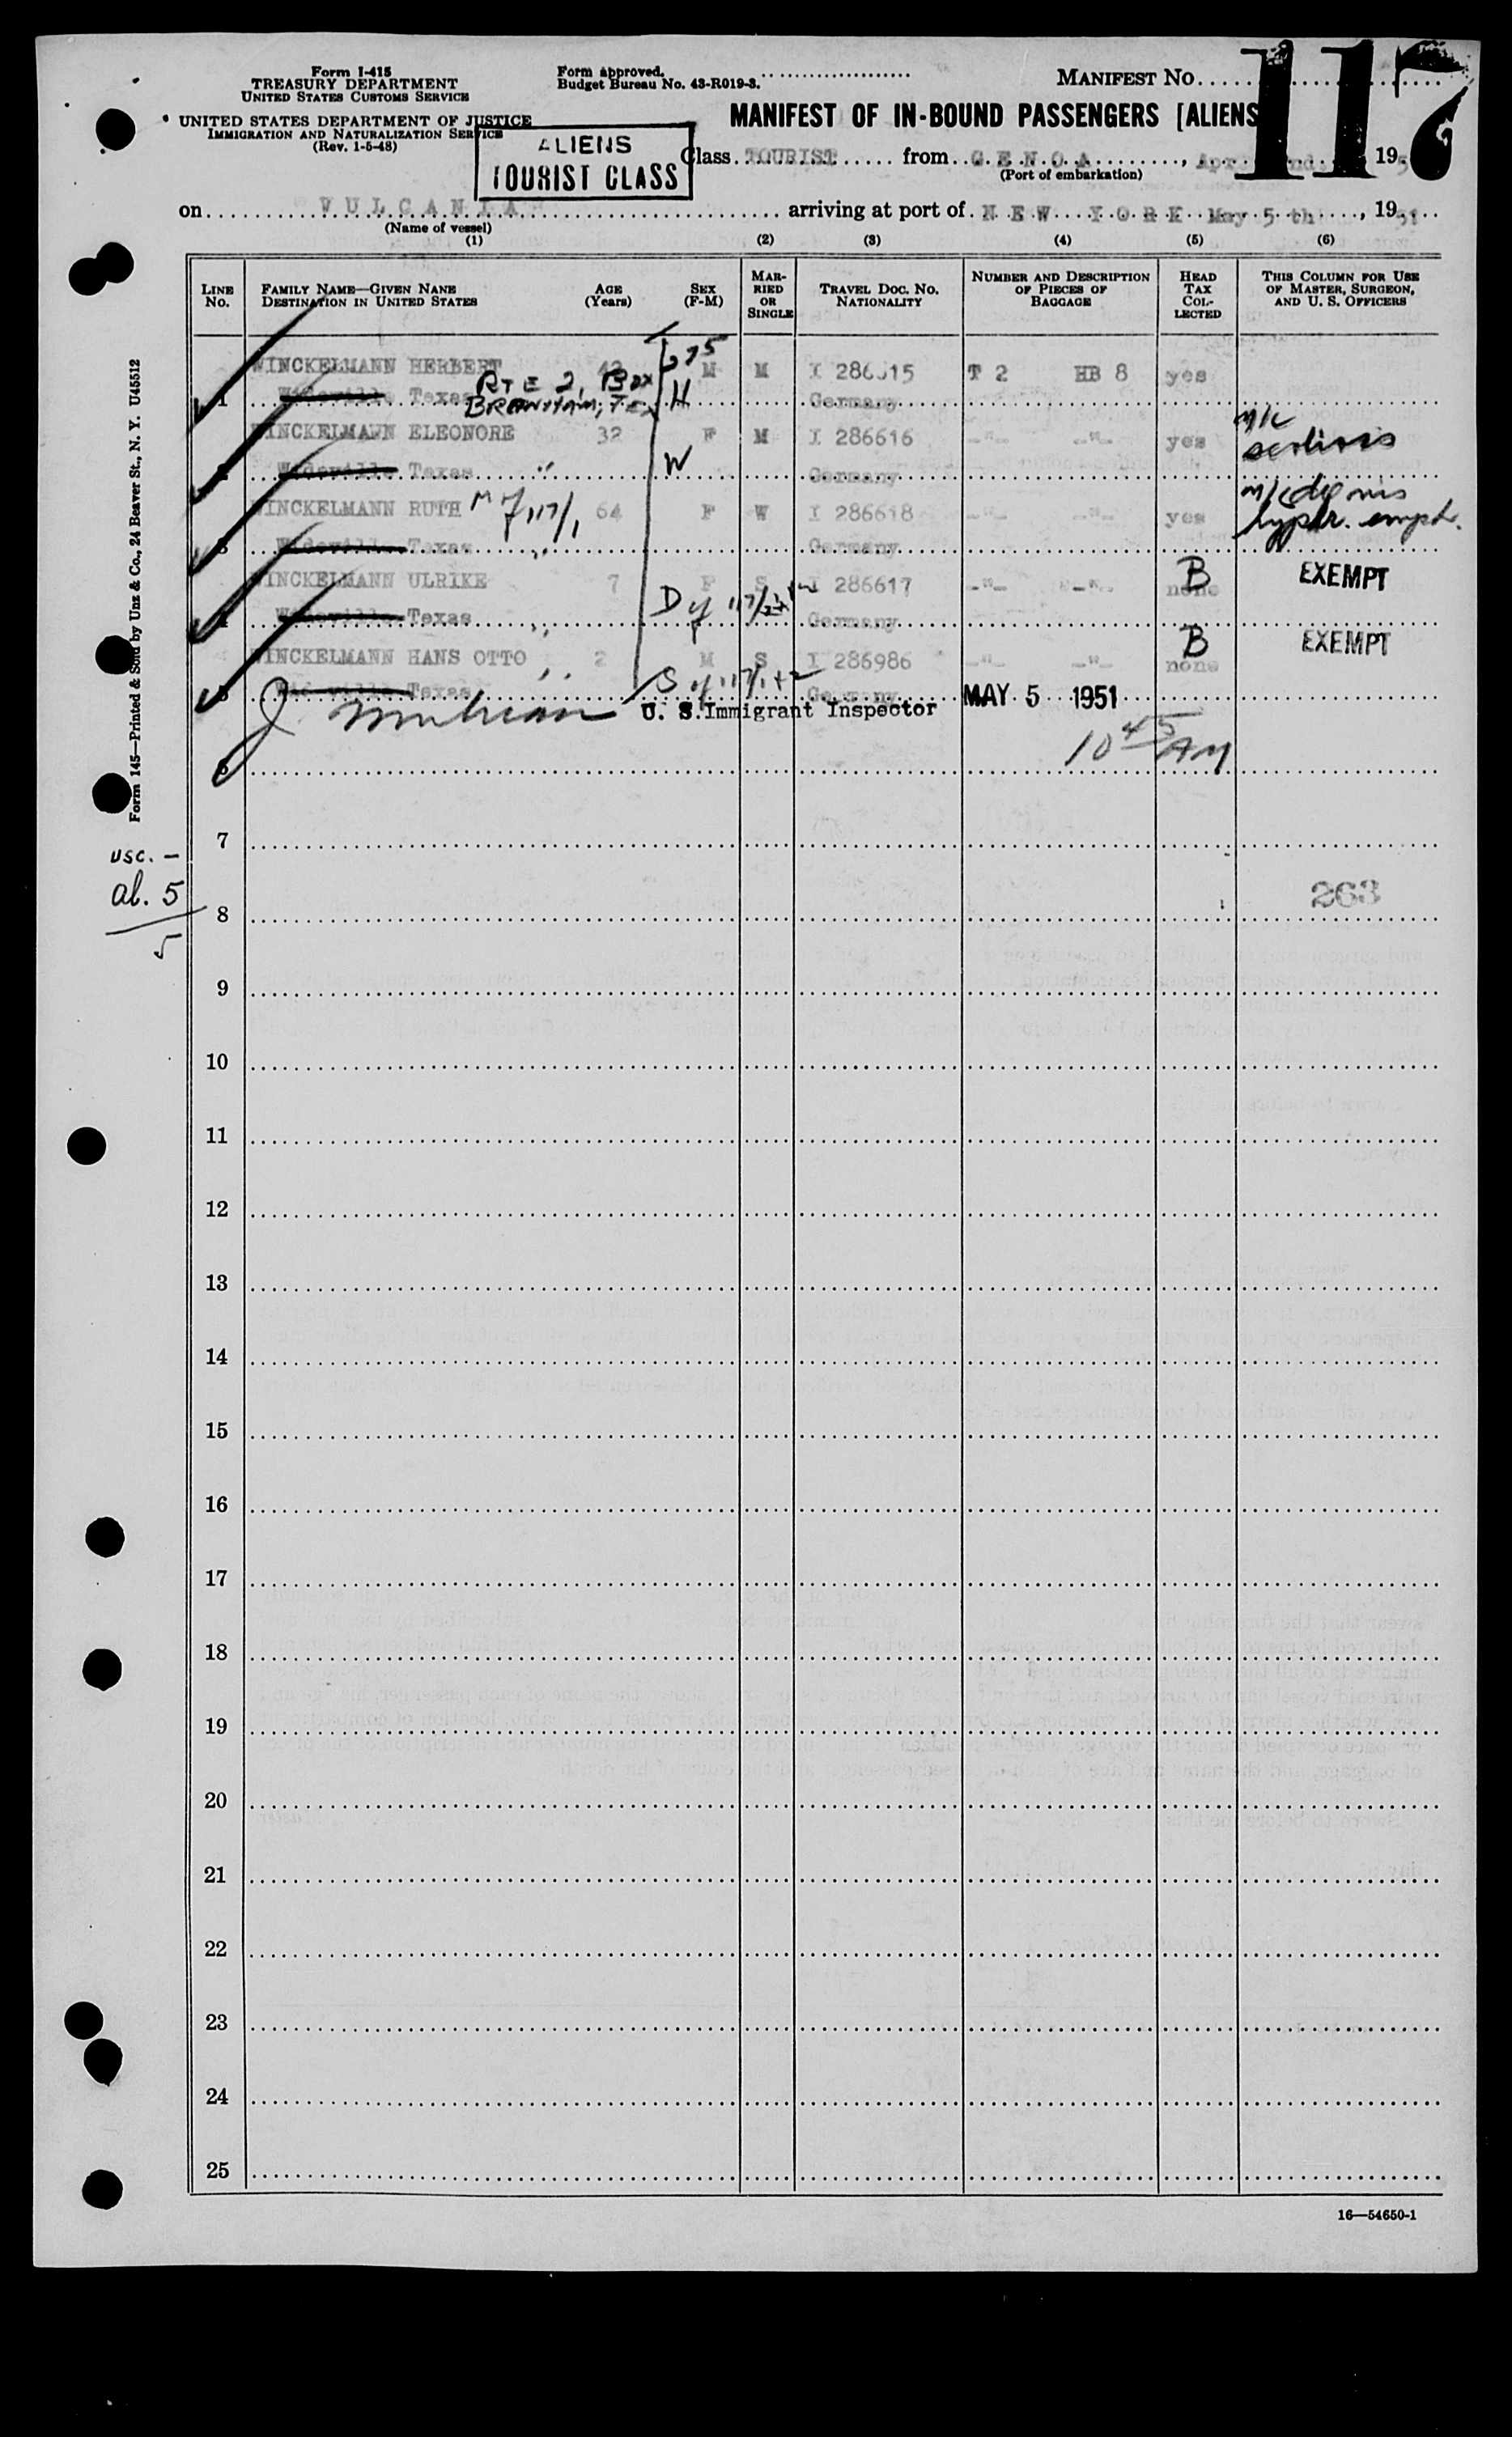 Form I-415
TREASURY DEPARTMENT
UNITED STATES CUSTOMS SERVICE
UNITED STATES DEPARTMENT OF JUSTICE
IMMIGRATION AND NATURALIZATION SERVICE
(Rev. 1-5-48)
Form approved.
Budget Bureau No. 43-R019-3.
MANIFEST NO. 117
MANIFEST OF IN-BOUND PASSENGERS [ALIENS
ALIENS
TOURIST CLASS
Class TOURIST from GENOA, Apr. nd 195
(Port of embarkation)
on VULCANIA arriving at port of NEW YORK May 5 th, 1951
(Name of vessel)
(1) (2) (3) (4) (5) (6)
LINE NO.
FAMILY NAME—GIVEN NANE
DESTINATION IN UNITED STATES
AGE (Years)
SEX (F-M)
MARRIED OR SINGLE
TRAVEL DOC. NO.
NATIONALITY
NUMBER AND DESCRIPTION OF PIECES OF BAGGAGE
HEAD TAX COLLECTED
THIS COLUMN FOR USE OF MASTER, SURGEON, AND U. S. OFFICERS
WINCKELMANN HERBERT 42 M M I 286615 T 2 HB 8 yes
RTE 2, Box 275
1 Texas BRENHAM, TEX H Germany
WINCKELMANN ELEONORE 32 F M I 286616 -"- -"- yes m/c
2 Texas " W Germany
WINCKELMANN RUTH M of 117/1 64 F W I 286618 -"- -"- yes m/c
3 Texas " Germany
WINCKELMANN ULRIKE 7 F S I 286617 -"- -"- none B EXEMPT
4 Texas " D of 117/ Germany
WINCKELMANN HANS OTTO 2 M S I 286986 -"- -"- none B EXEMPT
5 Texas " S of 117/1+2 Germany
U. S. Immigrant Inspector MAY 5 1951
10 45 AM
6
7
usc. –
al. 5
5
8 263
9
10
11
12
13
14
15
16
17
18
19
20
21
22
23
24
25
16—54650-1
Form 145—Printed & Sold by Unz & Co., 24 Beaver St., N. Y. U45512